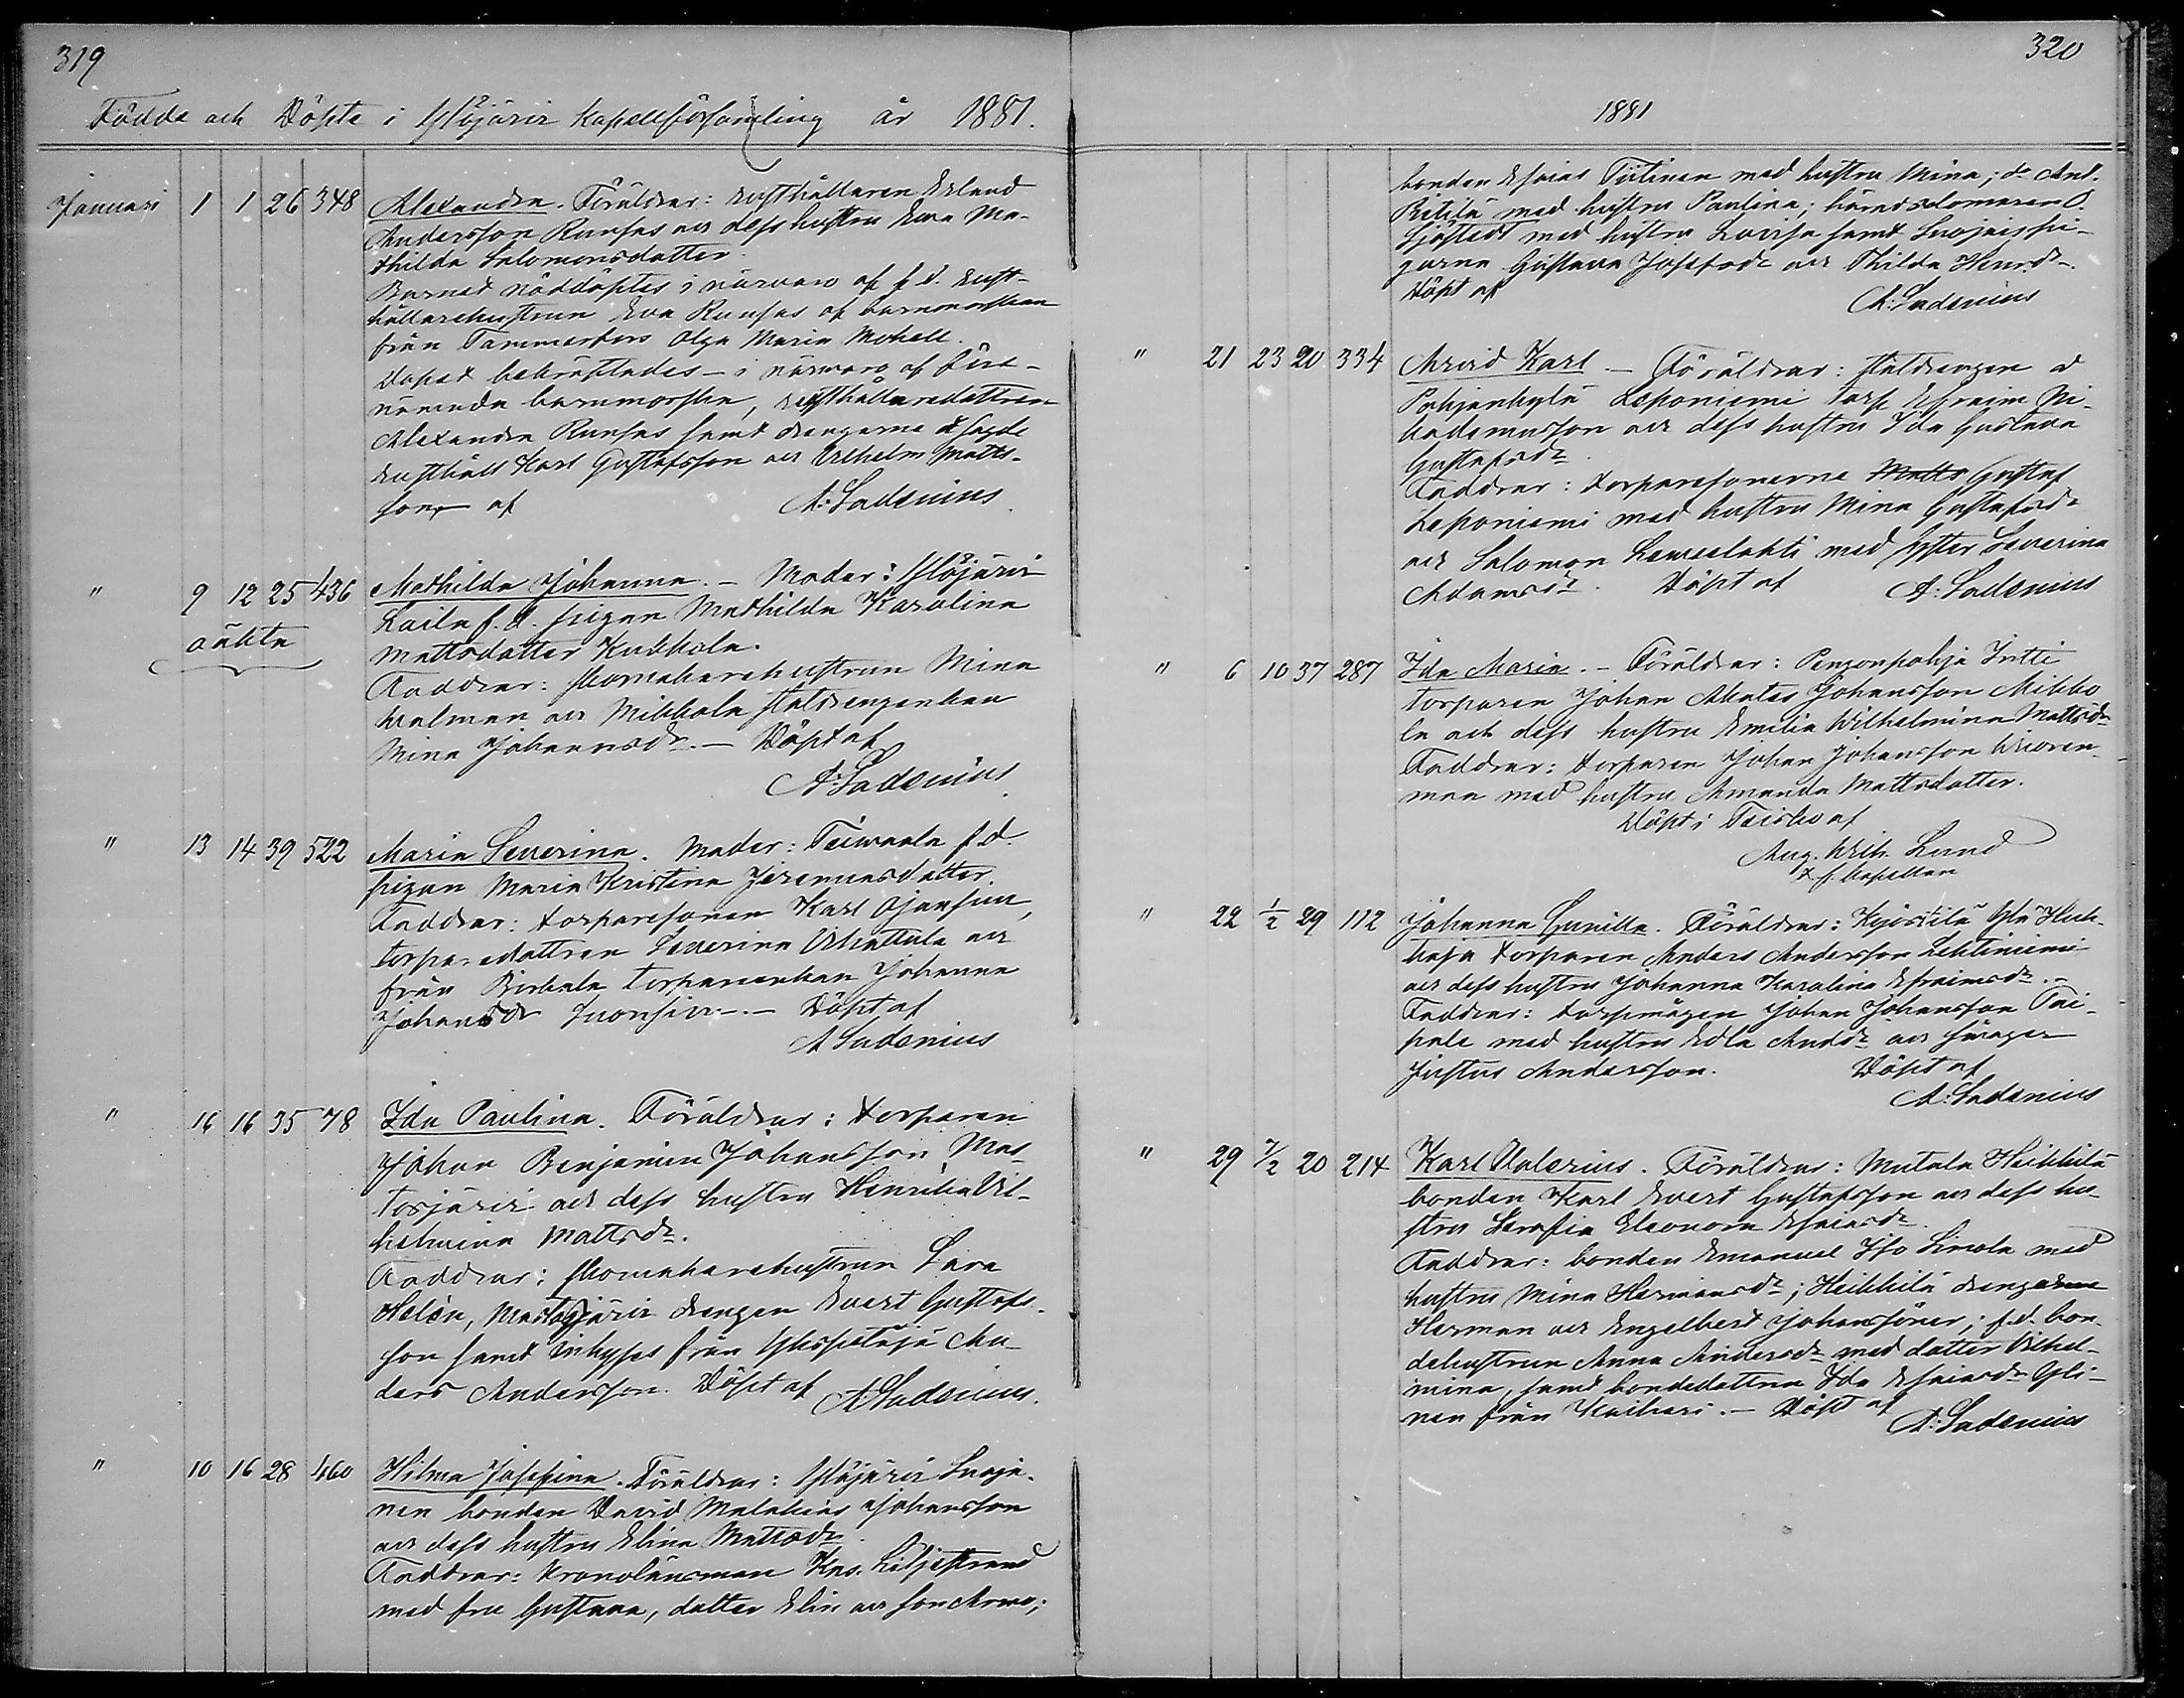 319
Födde och Döpte i Ylöjärvi Kapellförsamling år 1881.
Januari 1 1 26 348 Alexandra. Föräldrar: rusthållaren Erland
Andersson Runsas och dess hustru Eva Ma-
thilda Salomonsdotter.
Barnet nöddöptes i närvaro af f.d. rust-
hållarehustrun Eva Runsas af barnmorskan
från Tammerfors Olga Maria Mohell.
Dopet bekräftades - i närvaro af före-
nämnda barnmorska, rusthållaredottren
Alexandra Runsas samt drengarne å sagde
rusthåll Karl Gustafsson och Vilhelm Matts-
son af A: Ladenius
" 9 12 25 436 Mathilda Johanna. - Moder: Ylöjärvi
oäkta
Laila f.d. pigan Mathilda Karolina
Mattsdotter Kukkola.
Faddrar: skomakarehustrun Mina
Walman och Mikkola statdrengenkan
Mina Johansdr. - Döpt af
A: Ladenius
" 13 14 39 522 Maria Severina. Moder: Teiwaala f.d.
pigan Maria Kristina Jeremiasdotter.
Faddrar: torparesonen Karl Ojansuu,
torparedottren Severina Uhattula och
från Birkala torpareenkan Johanna
Johansdr Juonsivu. - Döpt af
A Ladenius
" 16 16 35 78 Ida Paulina. Föräldrar: torparen
Johan Benjamin Johansson Mas-
tosjärvi och dess hustru Henrika Vil-
helmina Mattsdr.
Faddrar: skomakarehustrun Sara
Helén, Mastosjärvi drengen Evert Gustafs-
son samt inhyses från Ylospetäjä An-
ders Andersson. Döpt af A: Ladenius.
" 10 16 28 460 Hilma Josefina. Föräldrar: Ylöjärvi Suoja-
nen bonden David Malakias Johansson
och dess hustru Elina Mattsdr.
Faddrar: Kronolänsman Kns. Liljestrand
med fru Gustava, dotter Elin och son Arvo;
320
1881
bonden Esaias Tiitinen med hustru Mina; do Ant.
Pietilä med hustru Paulina; häradsdomaren O.
Sjöstedt med hustru Lovisa samt Suojaispi-
gorna Gustava Josefsdr och Thilda Henrdr.
Döpt af
A: Ladenius
" 21 23 20 334 Arvid Karl. - Föräldrar: statdrengen å
Pohjankylä Leponiemi torp Efraim Ni-
kodemusson och dess hustru Ida Gustava
Gustafsdr.
Faddrar: torparesonerna Matts Gustaf
Leponiemi med hustru Mina Gustafsdr
och Salomon Lamminlahti med syster Severina
Adamsdr. Döpt af A: Ladenius
" 6 10 37 287 Ida Maria. - Föräldrar: Pengonpohja Intti
torparen Johan Akates Johansson Mikko-
la och dess hustru Emilia Wilhelmina Mattsdr
Faddrar: torparen Johan Johansson Wuoren-
maa med hustru Amanda Mattsdotter.
Döpt i Teisko af
Aug. Wilh. Lund
t.f. Kapellan
" 22 1/2 29 112 Johanna Gunilla. Föräldrar: Kyöstilä Yli Huh-
taja torparen Anders Andersson Lehtiniemi
och dess hustru Johanna Karolina Efraimsdr. -
Faddrar: torpmågen Johan Johansson Tai-
pale med hustru Edla Andsdr och svågern
Justus Andersson. Döpt af
A: Ladenius
" 29 7/2 20 214 Karl Valerius. Föräldrar: Mutala Heikkilä
bonden Karl Evert Gustafsson och dess hu-
stru Serafia Eleonora Esaiasdr.
Faddrar: bonden Emanuel Iso Simola med
hustru Mina Hermansdr; Heikkilä drengarne
Herman och Engelbert Johanssöner; f.d. bon-
dehustrun Anna Andersdr med dotter Vilhel-
mina, samt bondedottren Ida Esaiasdr Yli-
nen från Kaihari. - Döpt af A: Ladenius